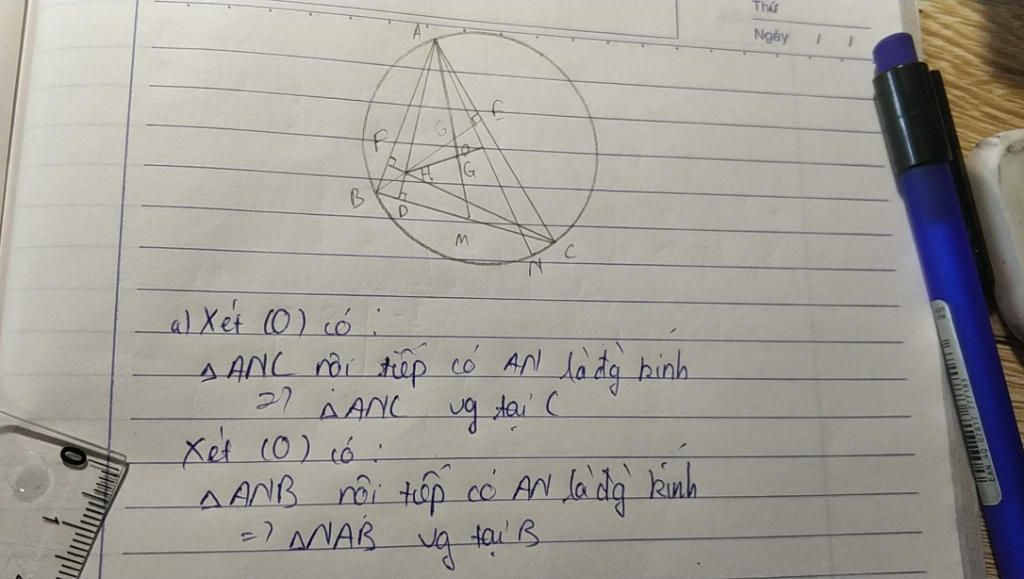 Thứ
Ngày / /
A
E
F
G
H
G
B
D
M
N
C
a) Xét (O) có :
△ANC nội tiếp có AN là đg kính
=> △ANC vg tại C
Xét (O) có :
△ANB nội tiếp có AN là đg kính
=> △NAB vg tại B
0
1